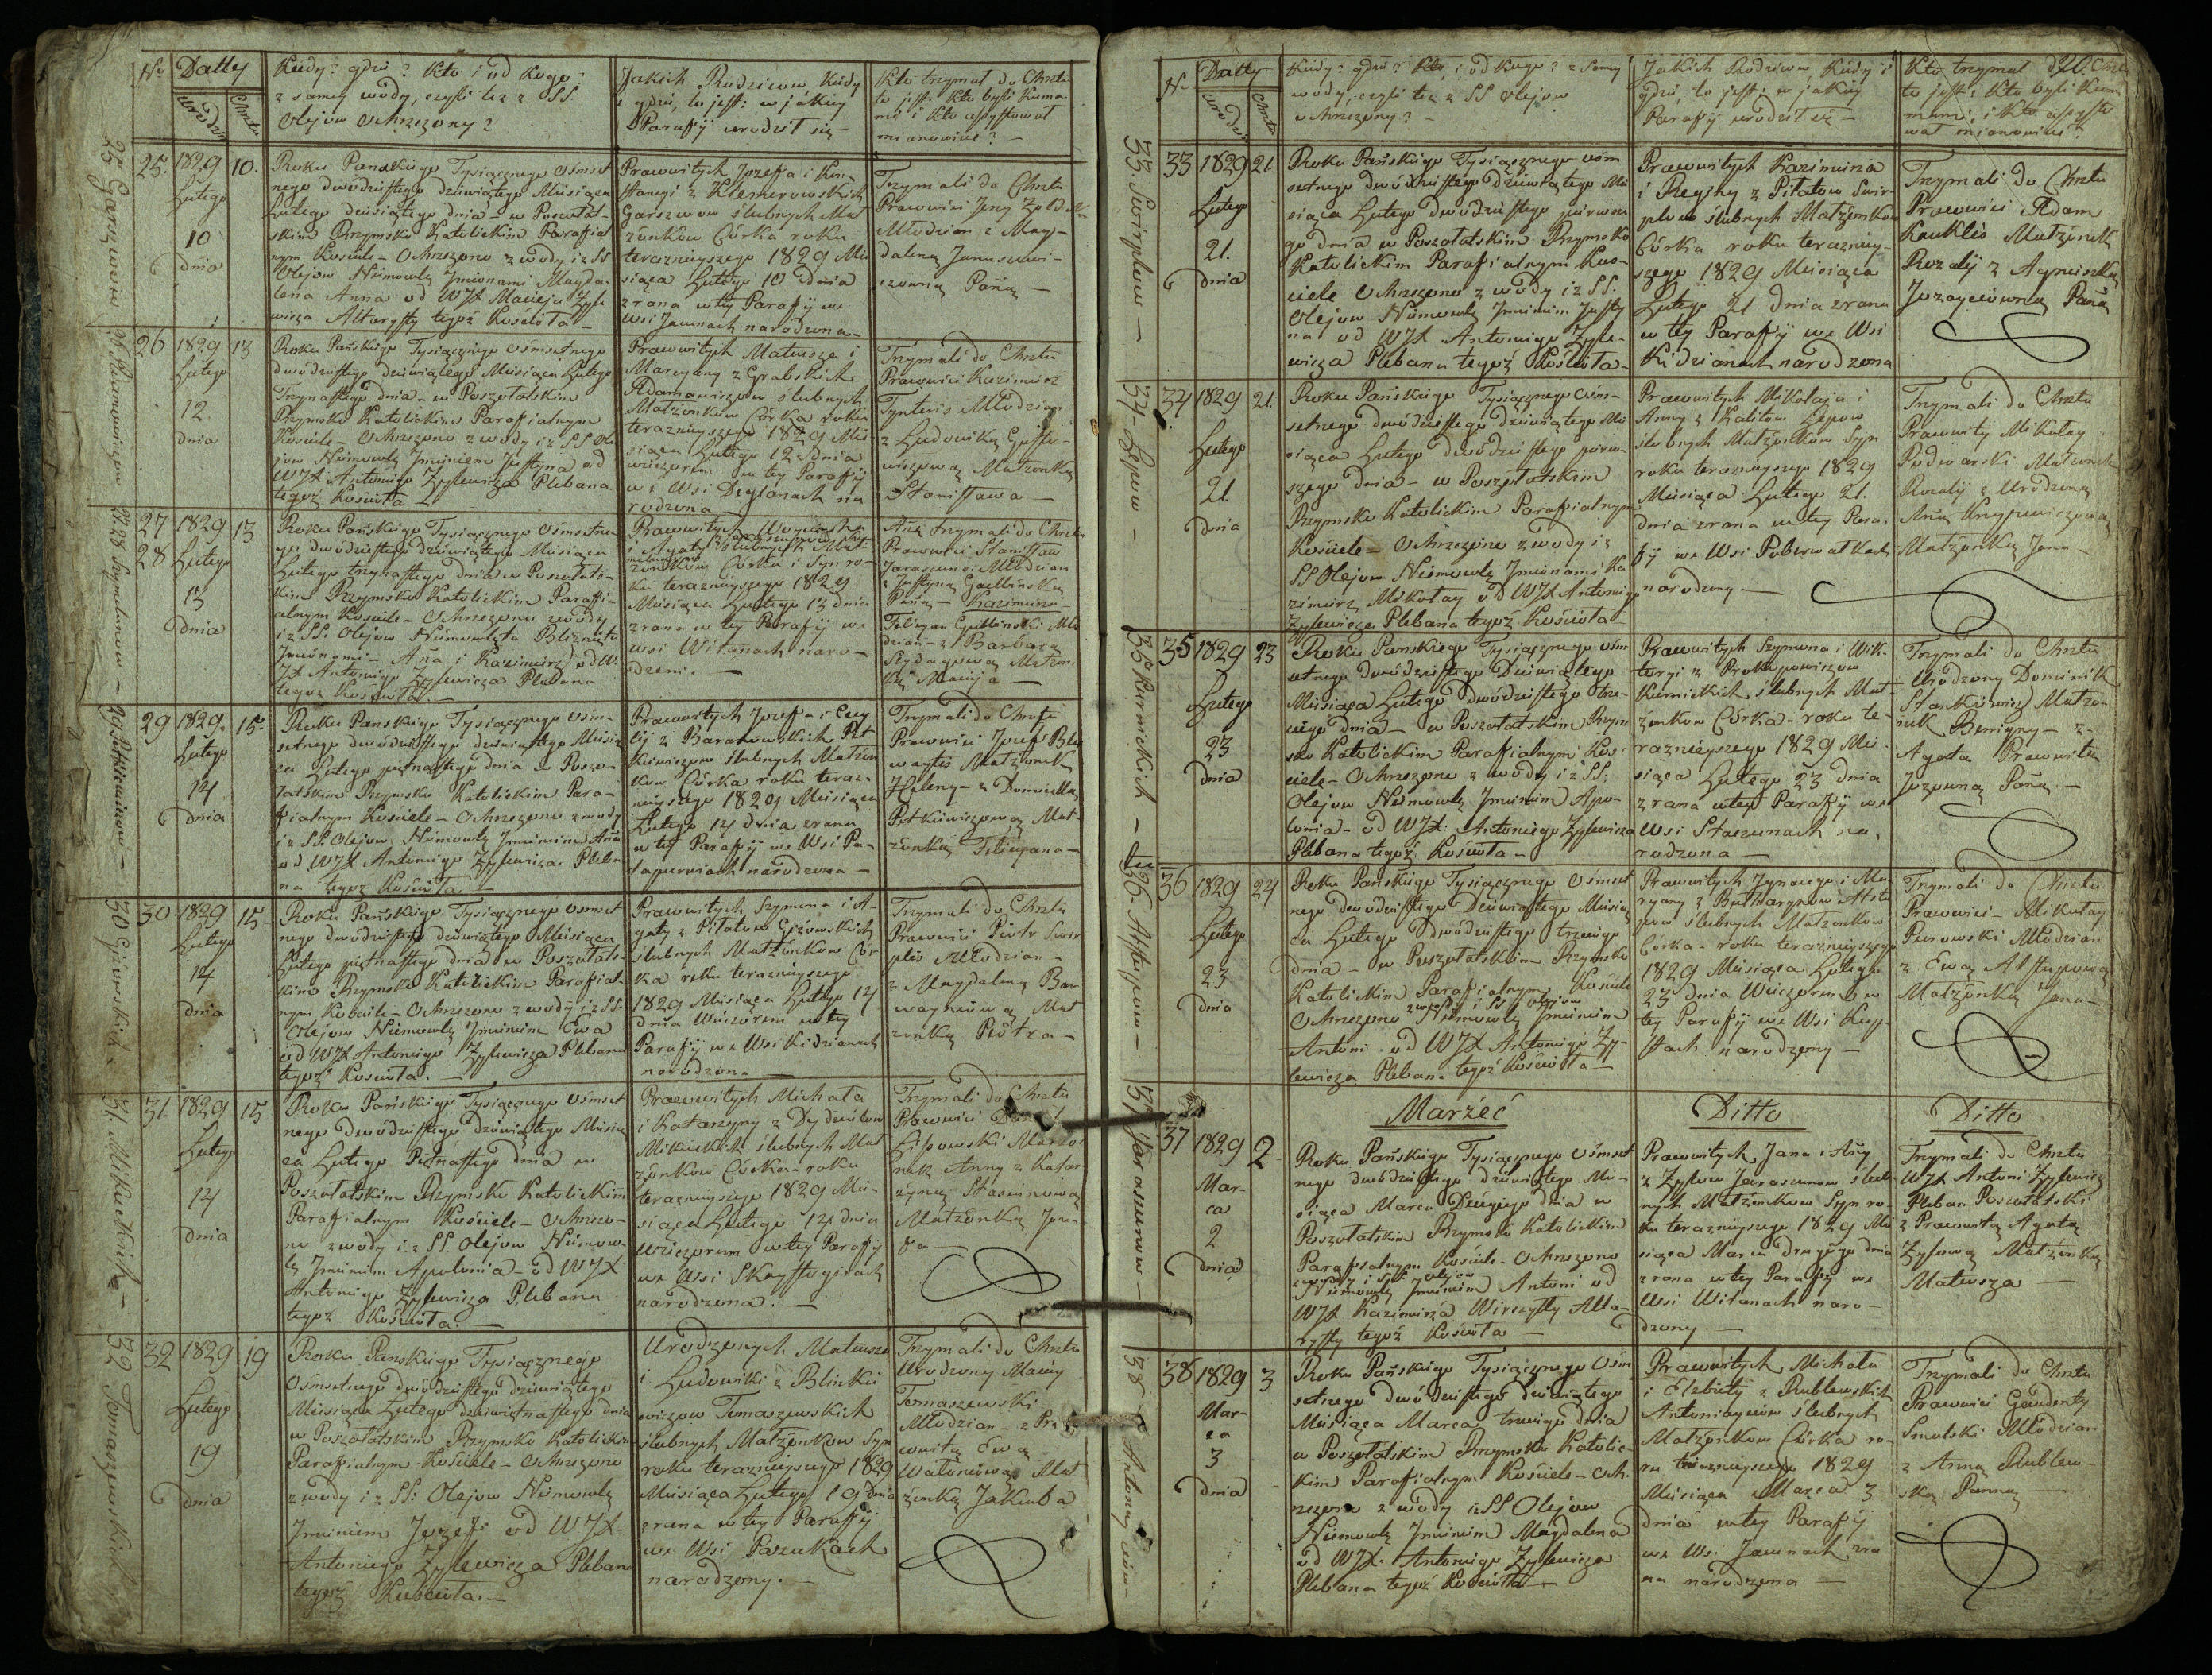 No
Datty
urodzin
Chrztu
Kiedy? gdzie? Kto i od Kogo?
z samey wody, czyli też z SS.
Olejow Ochrzczony?
Jakich Rodzicow, Kiedy
i gdzie, to jest: w jakiey
Parafij urodził się
Kto trzymał do Chrztu
to jest: Kto byli Kuma-
mi i kto assystował
mianowicie?
25 Garszwow
25.
1829
Lutego
10
dnia
10.
Roku Panskiego Tysiącznego Ośmset
nego dwódziestego dziewiątego Miesiąca
Lutego dziesiątego dnia w Poszołat-
skim Rzymsko Katolickim Parafial
nym Kosciele Ochrzczono z wody i z SS
Olejow Niemowlę Jmionami Magda-
lena Anna od WJX Macieja
Altarysty tegoż Kościoła
Prawowitych Jozefa i Kon-
stancyi z Klemerowskich
Garszwow ślubnych Mał
żonkow Córka roku
teraznieyszego 1829 Mie
siąca Lutego 10 dnia
zrana w tey Parafij we
Wsi Jawnach narodzona
Trzymali do Chrztu
Prawowici Jerzy
Młodzian z Mag-
daleną Januszewi-
czowną Panną
26 Adamowiczow
26
1829
Lutego
12.
dnia
13
Roku Pańskiego Tysiącznego Ośmsetnego
dwódziestego dziewiątego Miesiąca Lutego
Trzynastego dnia w Poszołatskim
Rzymsko Katolickim Parafialnym
Kościele Ochrzczono z wody i z SS Ole
jow Niemowlę Jmieniem Justyna od
WJX Antoniego Zylewicza Plebana
tegoż Kościoła
Prawowitych Mateusza i
Maryany z Grabskich
Adamowiczow ślubnych
Małżonkow Córka roku
teraznieyszego 1829 Mie
siąca Lutego 12 dnia
wieczorem w tey Parafij
we Wsi Deglanach na
rodzona
Trzymali do Chrztu
Prawowici Kazimierz
Młodzian
z Ludowiką
Małżonką
Stanisława
27. 28 Szymelunow
27
28
1829
Lutego
13
dnia
13
Roku Pańskiego Tysiącznego Ośmsetne
go dwódziestego dziewiątego Miesiąca
Lutego trzynastego dnia w Poszołats-
kim Rzymsko Katolickim Parafi-
alnym Kosciele Ochrzczono z wody
i z SS. Olejow Niemowlęta Bliznięta
Jmionami Anna i Kazimierz od W
JX Antoniego Zylewicza Plebana
tegoż Kościoła
Prawowitych
i Agaty
ślubnych Mał-
żonkow Córka i Syn ro-
ku teraznieyszego 1829
Miesiąca Lutego 13 dnia
zrana w tey Parafij we
wsi Witanach naro-
dzeni.
Annę trzymali do Chrztu
Prawowici Stanisław
Jaraszun Młodzian
z Justyną
Panną Kazimierz
Felicyan Młó
dzian z Barbarą
Małżon
ką Macieja
29 Pietkiewiczow
29
1829.
Lutego
14
dnia
15
Roku Panskiego Tysiącznego Ośm-
setnego dwódziestego dziewiątego Miesią
ca Lutego piętnastego dnia w Poszo-
łatskim Rzymsko Katolickim Para-
fialnym Kościele Ochrzczono z wody
i z SS. Olejow. Niemowlę Jmieniem Anna
od WJX Antoniego Zylewicza Pleba
na tegoż Kościoła
Prawowitych Jozefa i Cecy
lij z Baranowskich Piet
kiewiczow ślubnych Małżon
kow Córka roku teraz-
nieyszego 1829 Miesiąca
Lutego 14 dnia zrana
w tey Parafij we Wsi Po-
narodzona
Trzymali do Chrztu
Prawowici Jozef
Małżonek
Heleny z Domicellą
Pietkiewiczową Mał-
żonką Felicyana
30 Giżowskich
30
1829
Lutego
14
dnia
15
Roku Pańskiego Tysiącznego Ośmset
nego dwódziestego dziewiątego Miesiąca
Lutego piętnastego dnia w Poszołats-
kim Rzymsko Katolickim Parafial-
nym Kosciele Ochrzczono z wody i z SS.
Olejow Niemowlę Jmieniem Ewa
od WJX Antoniego Zylewicza Plebana
tegoż Kościoła.
Prawowitych Szymona i A-
gaty z Piłatow Giżowskich
ślubnych Małżonkow Cór
ka roku teraznieyszego
1829 Miesiąca Lutego 14
dnia Wieczorem w tey
Parafij we Wsi Kidzianach
narodzona
Trzymali do Chrztu
Prawowici Piotr Swir
plis Młodzian
z Magdaleną
Mał
żonką Piotra
31. Mikuckich
31.
1829
Lutego
14
dnia
15
Roku Pańskiego Tysiącznego Ośmset
nego dwódziestego dziewiątego Miesią
ca Lutego Piętnastego dnia w
Poszołatskim Rzymsko Katolickim
Parafialnym Kościele Ochrzczo-
no z wody i z SS. Olejow Niemow-
lę Jmieniem Apolonia od WJX
Antoniego Zylewicza Plebana
tegoż Kościoła.
Prawowitych Michała
i Katarzyny z
Mikuckich ślubnych Mał
żonkow Córka roku
teraznieyszego 1829 Mie-
siąca Lutego 14 dnia
Wieczorem w tey Parafij
we Wsi Skaystogirach
narodzona.
Trzymali do Chrztu
Prawowici
Lipowski Małżo
nek Anny z Katar
zyną Staszunową
Małżonką Joze-
fa
32 Tomaszewskich
32
1829
Lutego
19
dnia
19
Roku Panskiego Tysiącznego
Ośmsetnego dwódziestego dziewiątego
Miesiąca Lutego dziewiętnastego dnia
w Poszołatskim Rzymsko Katolickim
Parafialnym Kościele Ochrzczono
z wody i z SS: Olejow Niemowlę
Jmieniem Jozef od WJX
Antoniego Zylewicza Plebana
tegoż Kościoła.
Urodzonych Mateusza
i Ludowiki z Blinkie
wiczow Tomaszewskich
ślubnych Małżonkow Syn
roku teraznieyszego 1829
Miesiąca Lutego 19 dnia
zrana w tey Parafij
we Wsi Pazukach
narodzony.
Trzymali do Chrztu
Urodzony Maciey
Tomaszewski
Młodzian z Pra
wowitą Ewą
Mał-
żonką Jakuba
N.
Datty
urodzin
Chrztu
Kiedy? gdzie? Kto, i od Kogo? z samey
wody, czyli też z SS Olejow
ochrzczony?
Jakich Rodzicow, Kiedy i
gdzie, to jest: w jakiey
Parafij urodził się
Kto trzymał do Chrztu
to jest: Kto byli Kum
mami, i Kto assysto
wał mianowicie?
20.
33. Swirplow
33
1829
Lutego
21.
dnia
21
Roku Pańskiego Tysiącznego ośm
setnego dwódziestego dziewiątego Mie
siąca Lutego dwódziestego pierwsze
go dnia w Poszołatskim Rzymsko
Katolickim Parafialnym Koś-
ciele Ochrzczono z wody i z SS.
Olejow Niemowlę Jmieniem Justy
na od WJX Antoniego Zyle-
wicza Plebana tegoż Kościoła
Prawowitych Kazimierza
i Reginy z Piłatow Swir-
plow ślubnych Małżonkow
Córka roku teraźniey-
szego 1829 Miesiąca
Lutego 21 dnia zrana
w tey Parafij we Wsi
Kidzianach narodzona
Trzymali do Chrztu
Prawowici Adam
Kauklis Małżonek
Rozalij z Agnieszką
Panną
34. Lepow
34
1829
Lutego
21.
dnia
21.
Roku Pańskiego Tysiącznego Ośm-
setnego dwódziestego dziewiątego Mie
siąca Lutego dwódziestego pierw-
szego dnia w Poszołatskim
Rzymsko Katolickim Parafialnym
Kościele Ochrzczono z wody i z
SS Olejow Niemowlę Jmionami Ka
zimierz Mikołay od WJX Antoniego
Zylewicza Plebana tegoż Kościoła
Prawowitych Mikołaja i
Anny z Kalitow Lepow
ślubnych Małżonkow Syn
roku teraznieyszego 1829
Miesiąca Lutego 21.
dnia zrana w tey Para-
fij we Wsi Poberwałkach
narodzony
Trzymali do Chrztu
Prawowity Mikołay
Podwarski Małżonek
Rozalij z Urodzoną
Anną
Małżonką Jana
35 Kurnickich
35
1829
Lutego
23
dnia
23
Roku Panskiego Tysiącznego ośm
setnego dwódziestego Dziewiątego
Miesiąca Lutego dwódziestego trze-
ciego dnia w Poszołatskim Rzym
sko Katolickim Parafialnym Koś-
ciele Ochrzczono z wody i z SS:
Olejow Niemowlę Jmieniem Apo-
lonia od WJX: Antoniego Zylewicza
Plebana tegoż Kościoła
Prawowitych Szymona i Wik-
toryi z Prokopowiczow
Kurnickich ślubnych Mał-
żonkow Córka roku te-
raznieyszego 1829 Mie-
siąca Lutego 23 dnia
zrana w tey Parafij we
Wsi Staszunach na-
rodzona
Trzymali do Chrztu
Urodzony Dominik
Stankiewicz Małżo-
nek Benigny z
Agatą Prawowitą
Panną.
36. Atstupow
36
1829
Lutego
23
dnia
24
Roku Pańskiego Tysiącznego Ośmset
nego dwódziestego Dziewiątego Miesią
ca Lutego Dwódziestego trzeciego
dnia w Poszołatskim Rzymsko
Katolickim Parafialnym Kościele
Ochrzczono z wody i SS olejow Niemowlę Jmieniem
Antoni od WJX Antoniego Zy-
lewicza Plebana tegoż Kościoła
Prawowitych Jgnacego i Ma
ryany z Atstu
pow ślubnych Małżonkow
Córka roku teraznieyszego
1829 Miesiąca Lutego
23 dnia Wieczorem w
tey Parafij we Wsi
narodzony
Trzymali do Chrztu
Prawowici Mikołay
Purowski Młodzian
z Ewą Atstupową
Małżonką Jana
Marzéć
Ditto
Ditto
37 Jaraszunow
37
1829
Mar-
ca
2
dnia
2
Roku Pańskiego Tysiącznego Ośmset
nego dwódziestego dziewiątego Mie-
siąca Marca Drugiego dnia w
Poszołatskim Rzymsko Katolickim
Parafialnym Kościele Ochrzczono
z wody i SS: olejow
Niemowlę Jmieniem Antoni od
WJX Kazimierza Wirszyłły Alta-
rysty tegoż Kościoła
Prawowitych Jana i Anny
z Zylow Jaraszunow ślub-
nych Małżonkow Syn ro-
ku teraznieyszego 1829 Mie
siąca Marca drugiego dnia
zrana w tey Parafij we
Wsi Witanach naro
dzony.
Trzymali do Chrztu
WJX Antoni Zylewicz
Pleban Poszołatski
z Prawowitą Agatą
Zylową Małżonką
Mateusza
38 Antonayciow
38
1829
Mar-
ca
3
dnia
3
Roku Pańskiego Tysiącznego Ośm
setnego dwódziestego dziewiątego
Miesiąca Marca trzeciego dnia
w Poszołatskim Rzymsko Katolic-
kim Parafialnym Kościele Och-
rzczono z wody i z SS Olejow
Niemowlę Jmieniem Magdalena
od WJX. Antoniego Zylewicza
Plebana tegoż Kościoła
Prawowitych Michała
i Elżbiety z Rublewskich
Antonayciow ślubnych
Małżonkow Córka ro-
ku teraznieyszego 1829
Miesiąca Marca 3
dnia w tey Parafij
we Wsi Jawnach zra
na narodzona
Trzymali do Chrztu
Prawowici Gaudenty
Smolski Młodzian
z Anną Rublew-
ską Panną